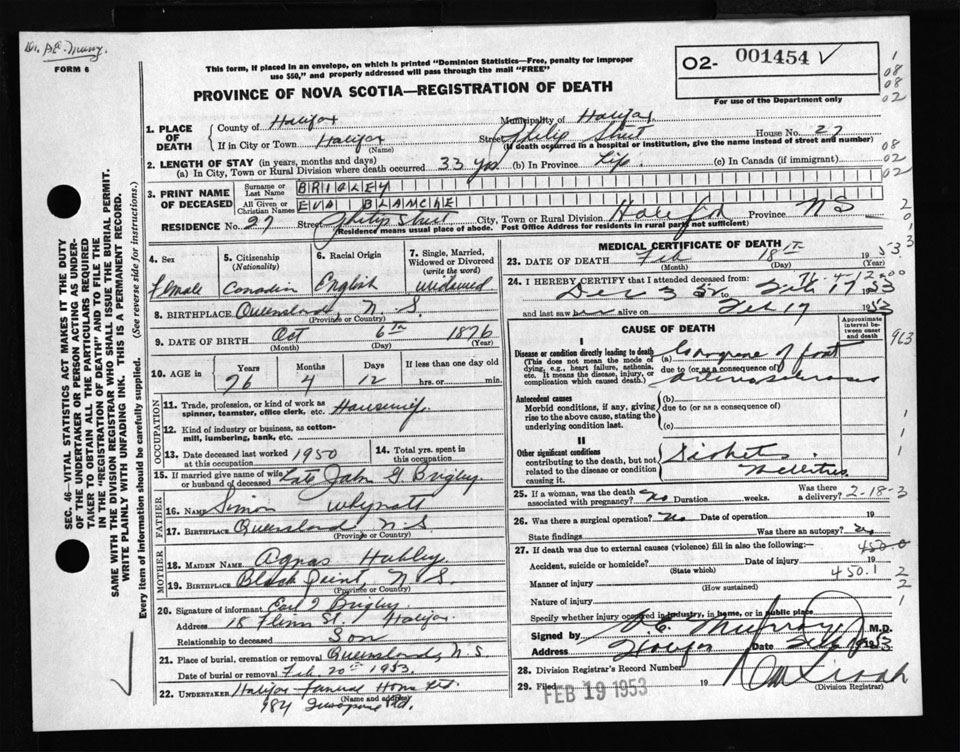 Dr. A.E. Murray.
FORM 6
This form, if placed in an envelope, on which is printed "Dominion Statistics—Free, penalty for improper
use $50," and properly addressed will pass through the mail "FREE"
PROVINCE OF NOVA SCOTIA—REGISTRATION OF DEATH
02- 001454 ✓
For use of the Department only
1
08
08
02
1. PLACE OF DEATH
County of Halifax Municipality of Halifax
If in City or Town Halifax Street Philip Street House No. 27
(Name) (If death occurred in a hospital or institution, give the name instead of street and number)
08
02
2. LENGTH OF STAY (in years, months and days)
(a) In City, Town or Rural Division where death occurred 33 yrs (b) In Province Life (c) In Canada (if immigrant)
02
3. PRINT NAME OF DECEASED
Surname or Last Name BRIGLEY
All Given or Christian Names EVA BLANCHE
RESIDENCE No. 27 Street Philip Street City, Town or Rural Division Halifax Province N S
(Residence means usual place of abode. Post Office Address for residents in rural parts not sufficient)
4. Sex
Female
5. Citizenship
(Nationality)
Canadian
6. Racial Origin
English
7. Single, Married,
Widowed or Divorced
(write the word)
widowed
8. BIRTHPLACE Queensland, N. S.
(Province or Country)
9. DATE OF BIRTH Oct 6th 1876
(Month) (Day) (Year)
10. AGE in
Years Months Days If less than one day old
76 4 12 hrs. or min.
OCCUPATION
11. Trade, profession, or kind of work as
spinner, teamster, office clerk, etc. Housewife
12. Kind of industry or business, as cotton-
mill, lumbering, bank, etc.
13. Date deceased last worked
at this occupation 1950
14. Total yrs. spent in
this occupation
15. If married give name of wife
or husband of deceased Late John G Brigley
FATHER
16. NAME Simon Whynott
17. BIRTHPLACE Queensland, N. S
(Province or Country)
MOTHER
18. MAIDEN NAME Agnas Hubley
19. BIRTHPLACE Black Point, N. S.
(Province or Country)
20. Signature of informant Brigley
Address 18 Flinn St. Halifax
Relationship to deceased Son
21. Place of burial, cremation or removal Queensland, N. S.
Date of burial or removal Feb. 20th 1953.
22. UNDERTAKER Halifax Funeral Home Ltd.
(Name and address)
MEDICAL CERTIFICATE OF DEATH
23. DATE OF DEATH Feb 18th 1953
(Month) (Day) (Year)
24. I HEREBY CERTIFY that I attended deceased from:
Dec 3 52 to Feb 17 1953
and last saw alive on Feb 17 1953
CAUSE OF DEATH
Approximate
interval be-
tween onset
and death
963
I
Disease or condition directly leading to death
(This does not mean the mode of
dying, e.g., heart failure, asthenia,
etc. It means the disease, injury, or
complication which caused death.)
(a) Gangrene of foot
due to (or as a consequence of)
arteriosclerosis
Antecedent causes
Morbid conditions, if any, giving
rise to the above cause, stating the
underlying condition last.
(b)
due to (or as a consequence of)
(c)
II
Other significant conditions
contributing to the death, but not
related to the disease or condition
causing it.
Diabetes
Mellitus
25. If a woman, was the death
associated with pregnancy? No Duration weeks. Was there a delivery? 2-18-3
26. Was there a surgical operation? No Date of operation 19
State findings Was there an autopsy? No
27. If death was due to external causes (violence) fill in also the following:— 450.0
Accident, suicide or homicide? Date of injury 19
(State which) 450.1
Manner of injury
(How sustained)
Nature of injury
Specify whether injury occurred in industry, in home, or in public place
Signed by A. E. Murray M.D.
Address Halifax Date Feb 1953
28. Division Registrar's Record Number
29. Filed FEB 19 1953 19
(Division Registrar)
SEC. 46—VITAL STATISTICS ACT MAKES IT THE DUTY
OF THE UNDERTAKER OR PERSON ACTING AS UNDER-
TAKER TO OBTAIN ALL THE PARTICULARS REQUIRED
IN THE "REGISTRATION OF DEATH" AND TO FILE THE
SAME WITH THE DIVISION REGISTRAR WHO SHALL ISSUE THE BURIAL PERMIT.
WRITE PLAINLY WITH UNFADING INK. THIS IS A PERMANENT RECORD.
Every item of information should be carefully supplied. (See reverse side for instructions.)